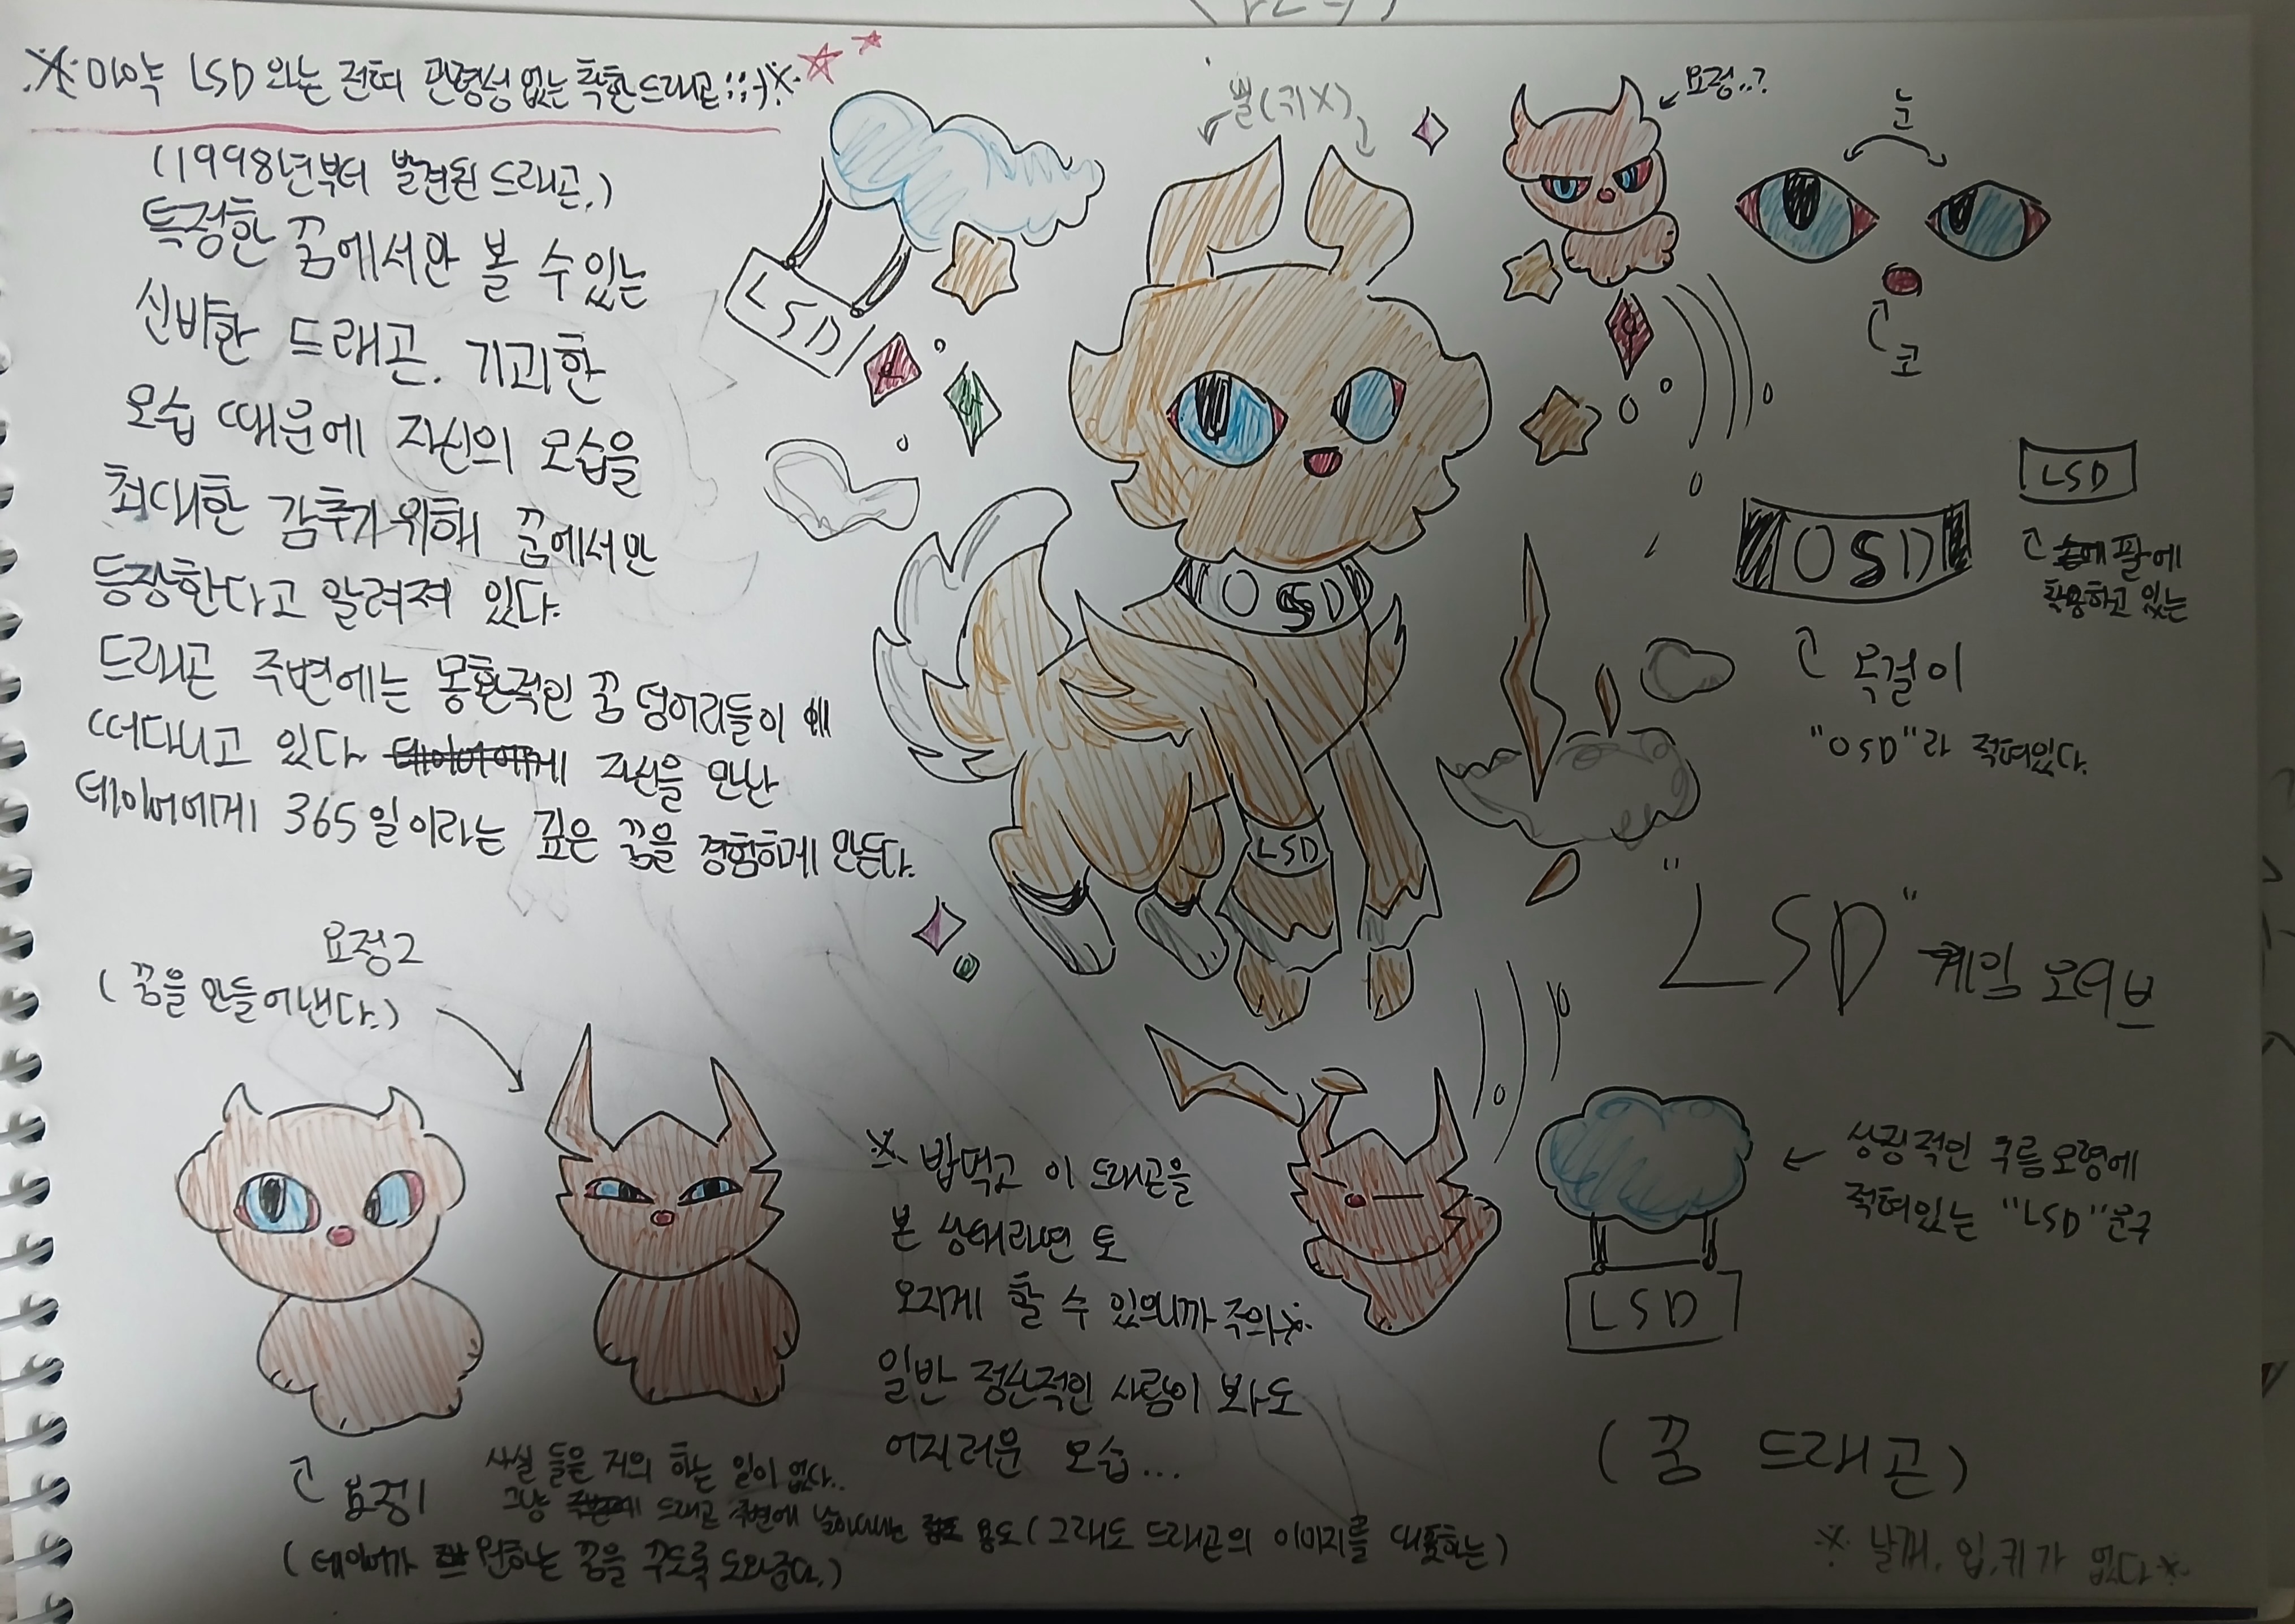 ※마약 LSD 와는 전혀 관령성 없는 착한 드래곤;;;※
(1998년부터 발견된 드래곤.)
특정한 꿈에서만 볼 수 있는
신비한 드래곤. 기괴한
모습 때문에 자신의 모습을
최대한 감추기 위해 꿈에서만
등장한다고 알려져 있다.
드래곤 주변에는 몽환적인 꿈 덩어리들이
떠다니고 있다 자신을 만난
테이머에게 365일이라는 깊은 꿈을 경험하게 만든다.
뿔(귀X)
요정..?
눈
코
LSD
OSD
LSD
LSD
팔에
착용하고 있는
OSD
목걸이
"OSD"라 적혀있다.
"LSD" 게임 모티브
요정2
(꿈을 만들어낸다.)
요정1
(테이머가 원하는 꿈을 꾸도록 도와준다.)
사실 둘은 거의 하는 일이 없다..
그냥 드래곤 주변에 날아다니는 용도 (그래도 드래곤의 이미지를 대표하는)
※ 밥먹고 이 드래곤을
본 상태라면 토
오지게 할 수 있으니까 주의※
일반 정신적인 사람이 봐도
어지러운 모습...
상징적인 구름모령에
적혀있는 "LSD" 문구
LSD
(꿈 드래곤)
※ 날개, 입, 귀가 없다※